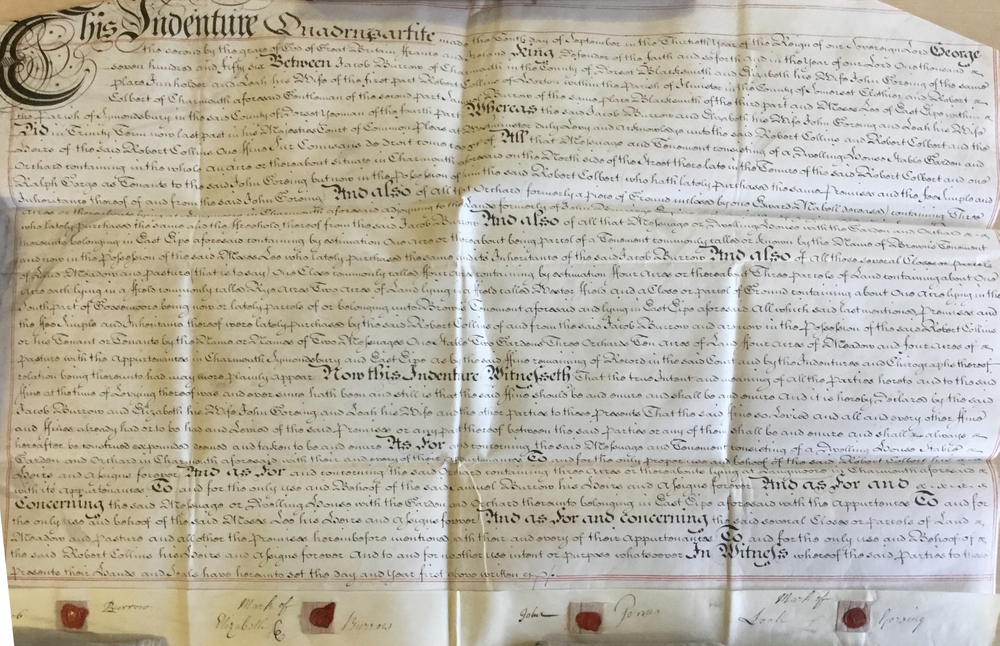 This Indenture Quadrupartite made the Tenth Day of September in the Thirtieth Year of the Reign of our Sovereign Lord George
the second by the grace of God of Great Britain France and Ireland King Defender of the faith and so forth and in the Year of our Lord One thousand
seven hundred and fifty six Between Jacob Burrow of Charmouth in the County of Dorset Blacksmith and Elizabeth his Wife John Gorsing of the same
place Innholder and Leah his Wife of the first part Robert Collins of within the Parish of Ilminster in the County of Somerset Clothier and Robert
Colbert of Charmouth aforesaid Gentleman of the second part Samuel Burrow of the same place Blacksmith of the third part and Moses Lee of East Cipe within
the Parish of Symondsbury in the said County of Dorset Yeoman of the fourth part Whereas the said Jacob Burrow and Elizabeth his Wife John Gorsing and Leah his Wife
Did in Trinity Term now last past in his Majesties Court of Common Pleas at Westminster duly Levy and Acknowledge unto the said Robert Collins and Robert Colbert and the
Heirs of the said Robert Collins One ffine Sur Conuzance de droit come ceo &c of All that Messuage and Tenement consisting of a Dwelling House Stable Garden and
Orchard containing in the whole an acre or thereabouts situate in Charmouth aforesaid on the North side of the Street there late in the Tenure of the said Robert Colbert and one
Ralph as Tenants to the said John Gorsing but now in the Possession of the said Robert Colbert who hath lately purchased the same Premises and the ffee simple and
Inheritance thereof of and from the said John Gorsing And also of all that Orchard formerly a piece of Ground inclosed by one Edward deceased containing Three
Acres or thereabouts Charmouth aforesaid adjoining to the Lands formerly of
who lately purchased the same and the ffreehold thereof from the said Jacob Burrow And also of all that Messuage or Dwelling House with the Garden and Orchard
thereunto belonging in East Cipe aforesaid containing by estimation One Acre or thereabout being parcel of a Tenement commonly called or known by the Name of Brown's Tenement
and now in the Possession of the said Moses Lee who lately purchased the same and the Inheritance thereof of the said Jacob Burrow And also of all those several Closes or parcels
of Land Meadow and Pasture that is to say One Close commonly called ffour Acres containing by estimation ffour Acres or thereabout Three parcels of Land containing about One
Acre each lying in a ffield commonly called Rye Acres Two Acres of Land lying in a ffield called ffield and a Close or parcel of Ground containing about One Acre lying in the
South part of being now or lately parcels of or belonging unto Brown's Tenement aforesaid and lying in East Cipe aforesaid All which said last mentioned Premises and
the ffee simple and Inheritance thereof were lately purchased by the said Robert Collins of and from the said Jacob Burrow and are now in the Possession of the said Robert Collins
or his Tenant or Tenants by the Name or Names of Two Messuages One Stable Two Gardens Three Orchards Ten Acres of Land ffour Acres of Meadow and four Acres of
Pasture with the Appurtenances in Charmouth Symondsbury and East Cipe as by the said ffine remaining of Record in the said Court and by the Indentures and Chirographs thereof
relation being thereunto had may more plainly appear Now this Indenture Witnesseth That the true Intent and meaning of all the Parties hereto and to the said
ffine at the time of Levying thereof was and ever since hath been and still is that the said ffine should be and enure and shall be and enure And it is hereby Declared by the said
Jacob Burrow and Elizabeth his Wife John Gorsing and Leah his Wife and the other parties to these Presents That the said ffine so Levied and all and every other ffine
and ffines already had or to be had and Levied of the said Premises or any part thereof between the said Parties or any of them shall be and enure and shall always
hereafter be construed expounded deemed and taken to be and enure As for and concerning the said Messuage and Tenement consisting of a Dwelling House Stable
Garden and Orchard in Charmouth aforesaid with their and every of their To and for the only proper use and behoof of the said Robert Colbert his
Heirs and Assigns forever And as for and concerning the said Orchard containing three Acres or thereabouts in Charmouth aforesaid
with its Appurtenances To and for the only use and Behoof of the said Samuel Burrow his Heirs and Assigns forever And as for and
Concerning the said Messuage or Dwelling House with the Garden and Orchard thereunto belonging in East Cipe aforesaid with the Appurtenances To and for
the only use and behoof of the said Moses Lee his Heirs and Assigns forever And as for and concerning the said several Closes or parcels of Land
Meadow and Pasture and all other the Premises hereinbefore mentioned with their and every of their Appurtenances To and for the only use and Behoof of
the said Robert Collins his Heirs and Assigns forever And to and for no other use intent or purpose whatsoever In Witness whereof the said Parties to these
Presents their Hands and Seals have hereunto set the day and Year first above written
Burrow Mark of Elizabeth Burrow John Gorsing Mark of Leah Gorsing